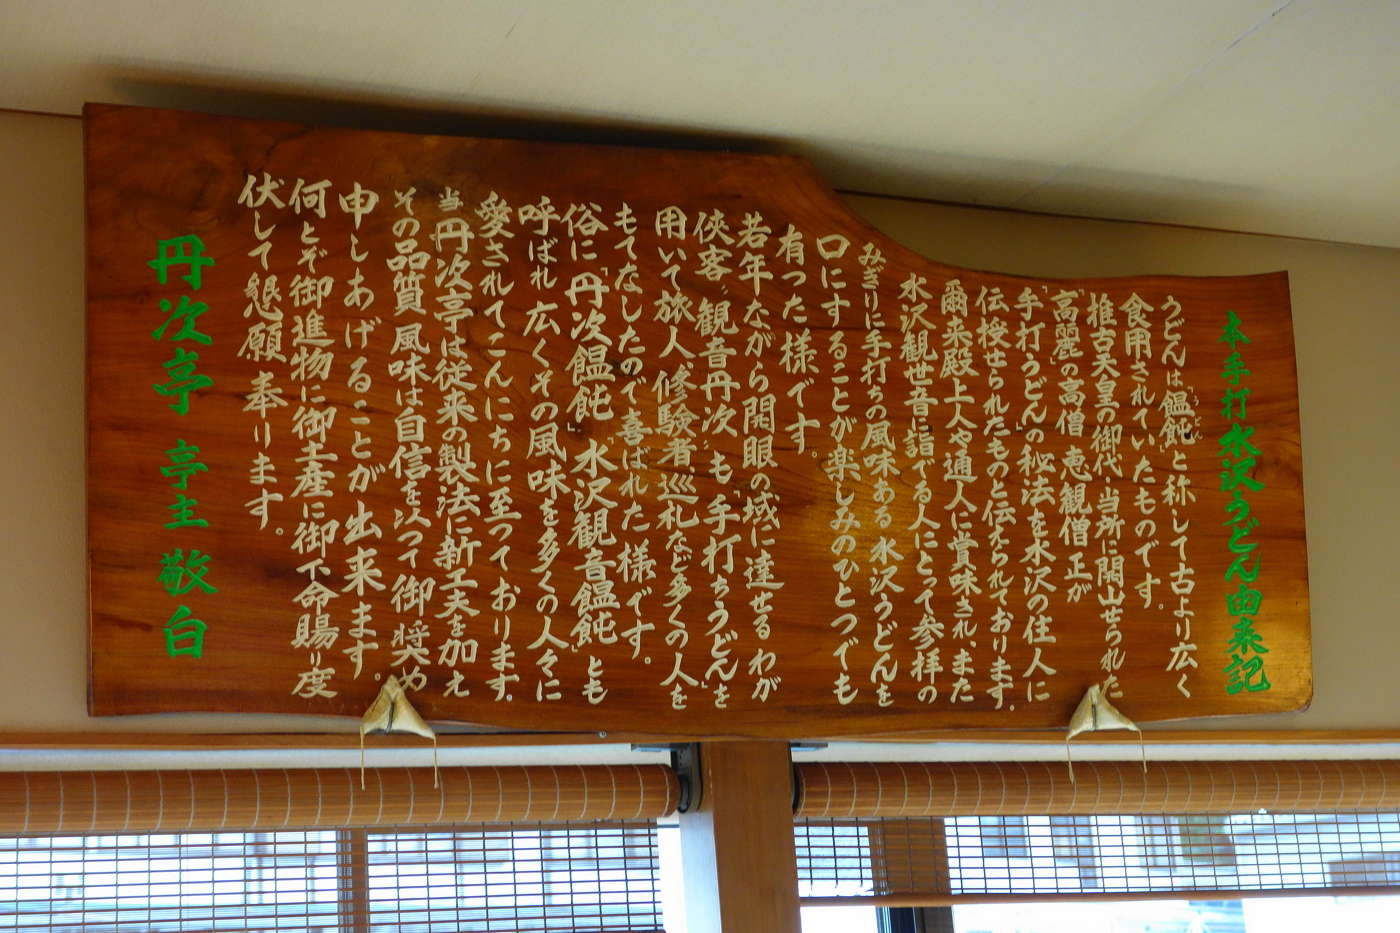 本手打水沢うどん由来記
うどんは「饂飩」と称して古より広く
食用されていたものです。
推古天皇の御代・当所に開山せられた
「高麗」の高僧 恵観僧正が
「手打うどん」の秘法を水沢の住人に
伝授せられたものと伝えられております。
爾来殿上人や通人に賞味され、また
水沢観世音に詣でる人にとって参拝の
みぎりに手打ちの風味ある水沢うどんを
口にすることが楽しみのひとつでも
有った様です。
若年ながら開眼の域に達せるわが
侠客、観音丹次、も「手打ちうどん」を
用いて旅人、修験者、巡礼など多くの人を
もてなしたので喜ばれた様です。
俗に「丹次饂飩」「水沢観音饂飩」とも
呼ばれ広くその風味を多くの人々に
愛されてこんにちに至っております。
当丹次亭は従来の製法に新工夫を加え
その品質 風味は自信を以って御奨め
申しあげることが出来ます。
何とぞ御進物に御土産に御下命賜り度
伏して懇願奉ります。
丹次亭 亭主 敬白